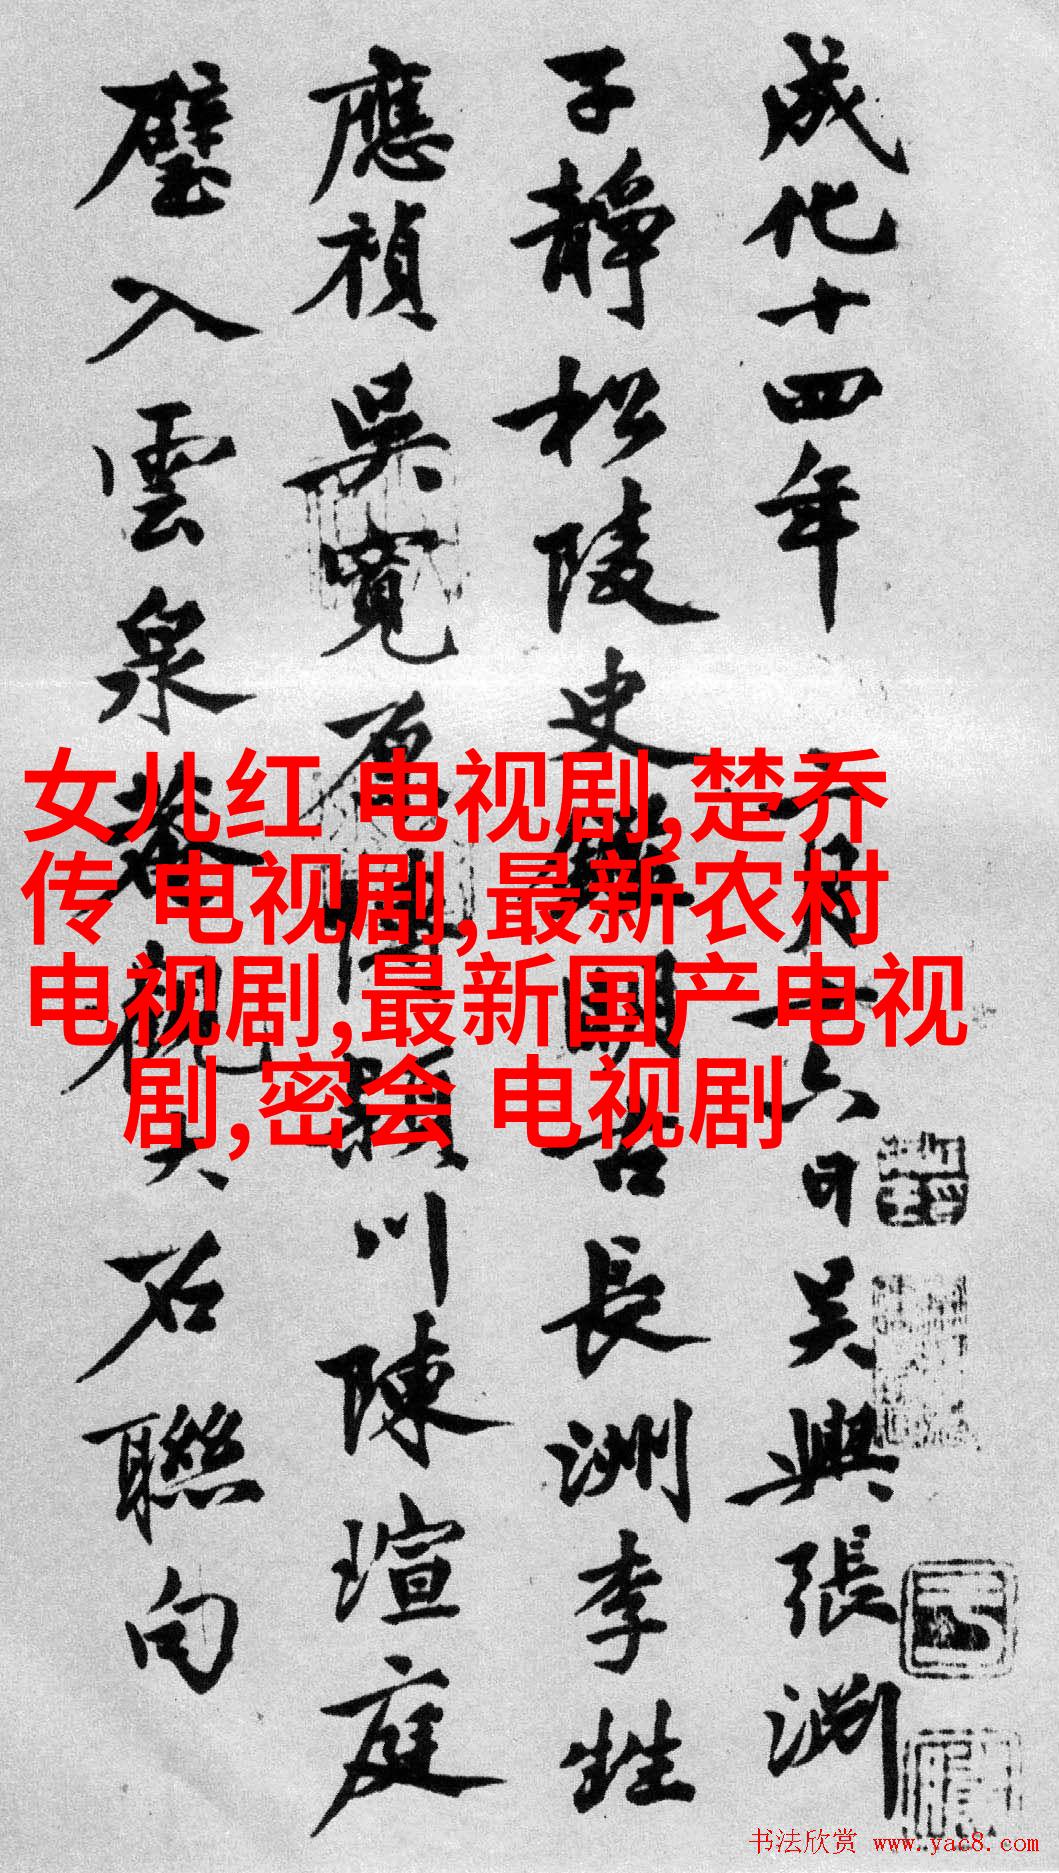 成化十四年月十六日吳興張淵
子靜松陵史鑑明古長洲李甡
應禎吳寬原博潁川陳瑄庭
璧入雲泉菴觀大石聯句
女儿红 电视剧,楚乔
传 电视剧,最新农村
电视剧,最新国产电视
剧,密会 电视剧
书法欣赏 www.yac8.com